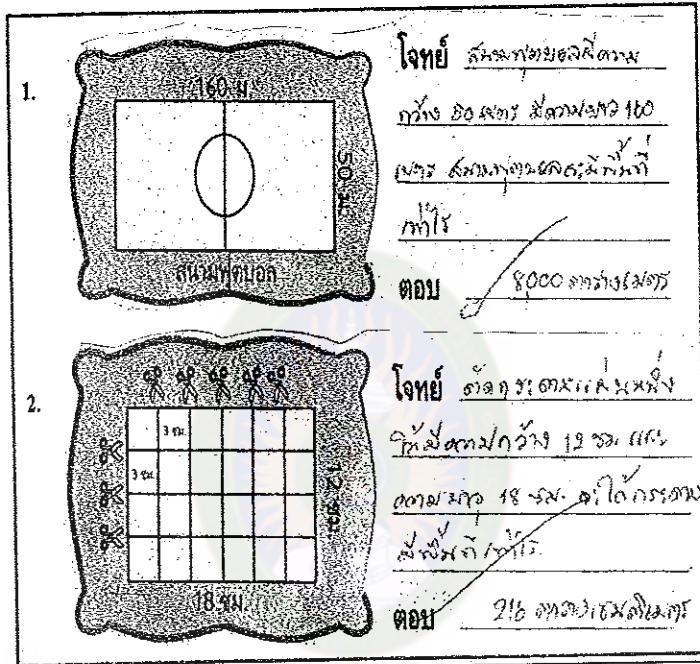 1.
160 ม.
50 ม.
สนามฟุตบอล
โจทย์ สนามฟุตบอลมีความ
กว้าง 50 เมตร มีความยาว 160
เมตร สนามฟุตบอลจะมีพื้นที่
เท่าไร
ตอบ 8,000 ตารางเมตร
2.
3 ซม.
3 ซม.
12 ซม.
18 ซม.
โจทย์ ตัดกระดาษแผ่นหนึ่ง
ให้มีความกว้าง 12 ซม. และ
ความยาว 18 ซม. จะได้กระดาษ
มีพื้นที่เท่าไร
ตอบ 216 ตารางเซนติเมตร